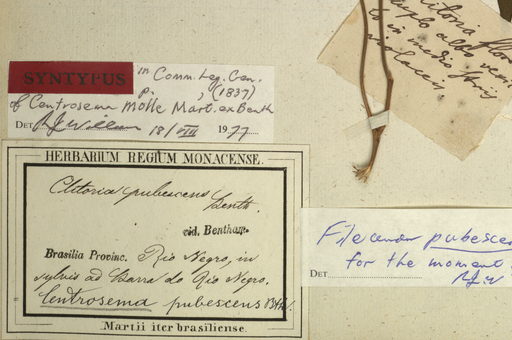 SYNTYPUS in Comm. Leg. Gen.
p. , (1837)
of Centrosema molle Mart. ex Benth
DET. 18/VIII 1977
HERBARIUM REGIUM MONACENSE.
Clitoria pubescens Benth.
vid. Bentham.
Brasilia Provinc. Rio Negro, in
sylvis ad Barra do Rio Negro.
Centrosema pubescens Bth.
Martii iter brasiliense.
flor
alba
in medio
violaceis
File under pubescen
for the moment
DET. RJW